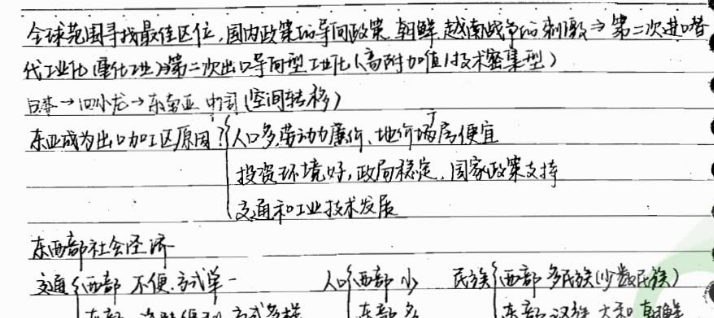 全球范围寻找最佳区位,国内政策的导向政策 朝鲜 越南战争的刺激⇒第二次进口替
代工业化(重化工业)第二次出口导向型工业化(高附加值/技术密集型)
日本→四小龙→东南亚 中国(空间转移)
东亚成为出口加工区原因?{人口多,劳动力廉价、地价 厂房便宜
投资环境好,政局稳定,国家政策支持
交通和工业技术发展
东西部社会经济
交通{西部 不便.方式单一 人口{西部 少 民族{西部 多民族(少数民族)
东部 方式多样 东部 多 东部 汉族 大和 朝鲜